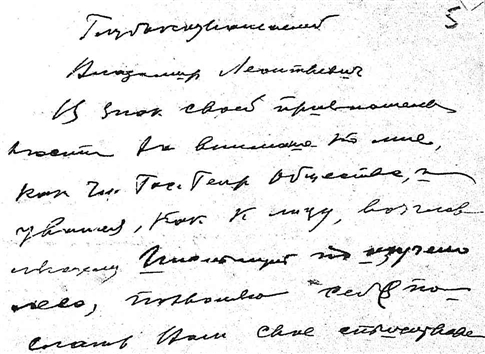 5
Глубокоуважаемый
Владимир Леонтьевич
В знак своей признатель
ности за внимание ко мне,
как Чл. Гос. Геогр Общества, и
уважения, как к лицу, возглав
ляющему Институт по изучению
леса, позволяю себѣ по-
слать Вам свое